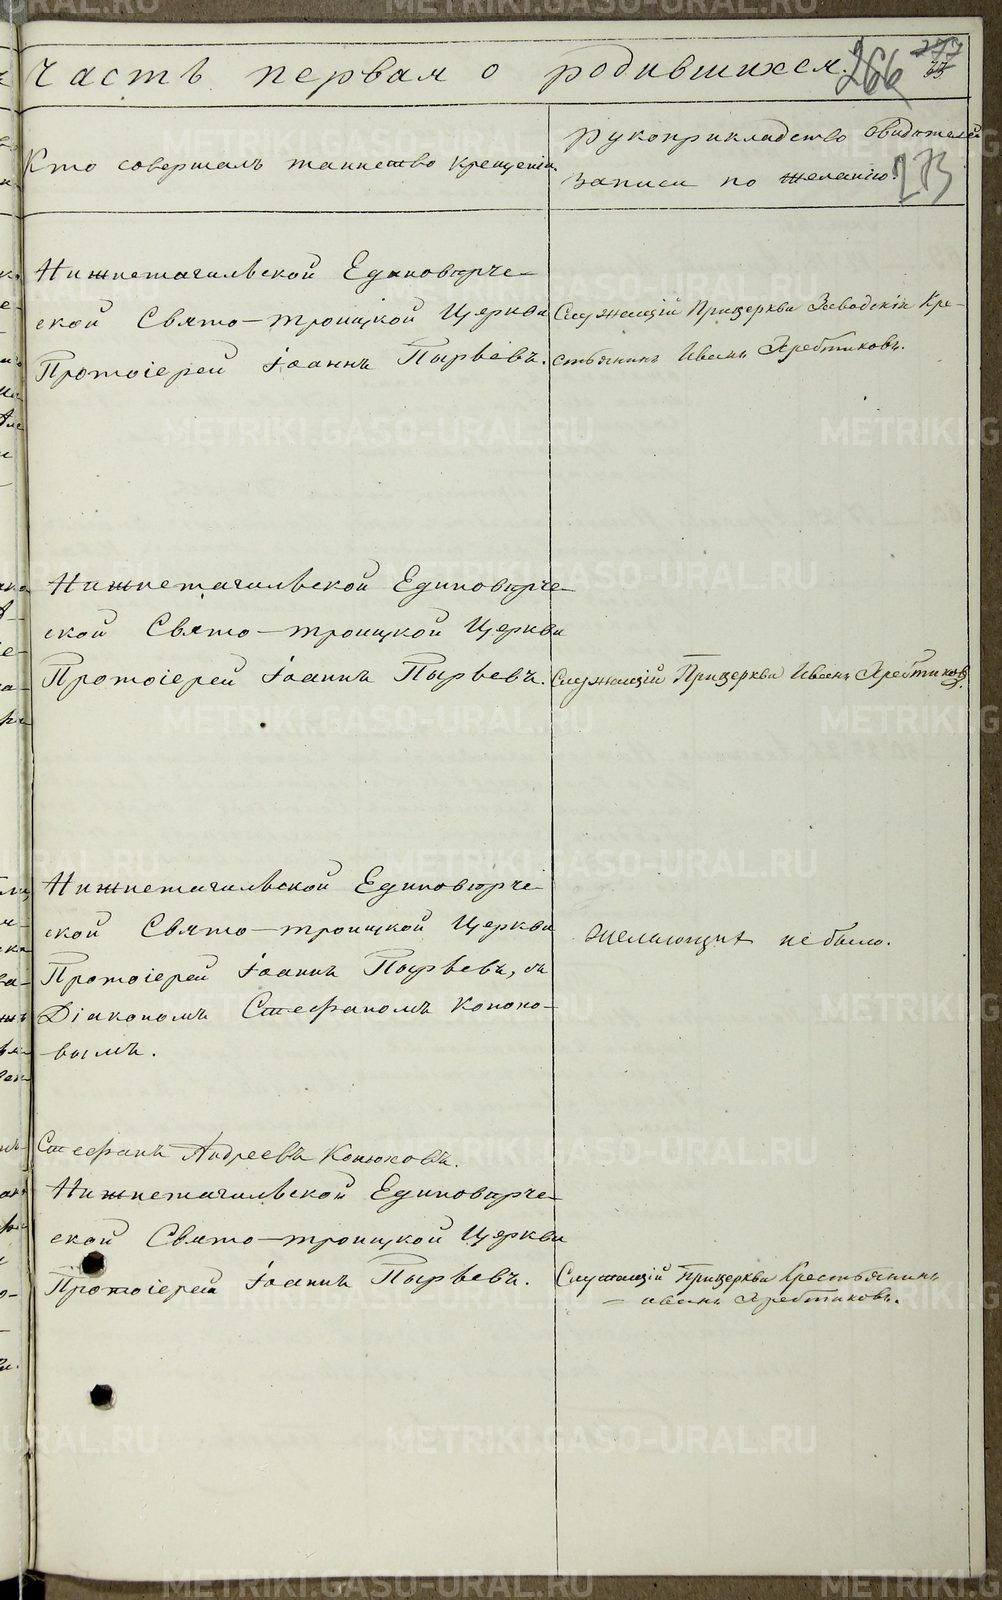 Часть первая о родившихся.
266
277
33
Кто совершалъ таинство крещенія.
Рукоприкладство свидѣтелей
записи по желанію.
273
Нижнетагильской Единовѣрче-
ской Свято-Троицкой Церкви
Протоіерей Іоаннъ Пырьевъ.
Служащій При церкви Заводскій Кре-
стьянинъ Иванъ
Нижнетагильской Единовѣрче-
ской Свято-Троицкой Церкви
Протоіерей Іоаннъ Пырьевъ.
Служащій При церкви Иванъ
Нижнетагильской Единовѣрче-
ской Свято-Троицкой Церкви
Протоіерей Іоаннъ Пырьевъ, съ
Діакономъ Стефаномъ Коноко-
вымъ.
Желающихъ не было.
Стефанъ Андреевъ Конюховъ.
Нижнетагильской Единовѣрче-
ской Свято-Троицкой Церкви
Протоіерей Іоаннъ Пырьевъ.
Служащій При церкви Крестьянинъ
Иванъ
METRIKI.GASO-URAL.RU